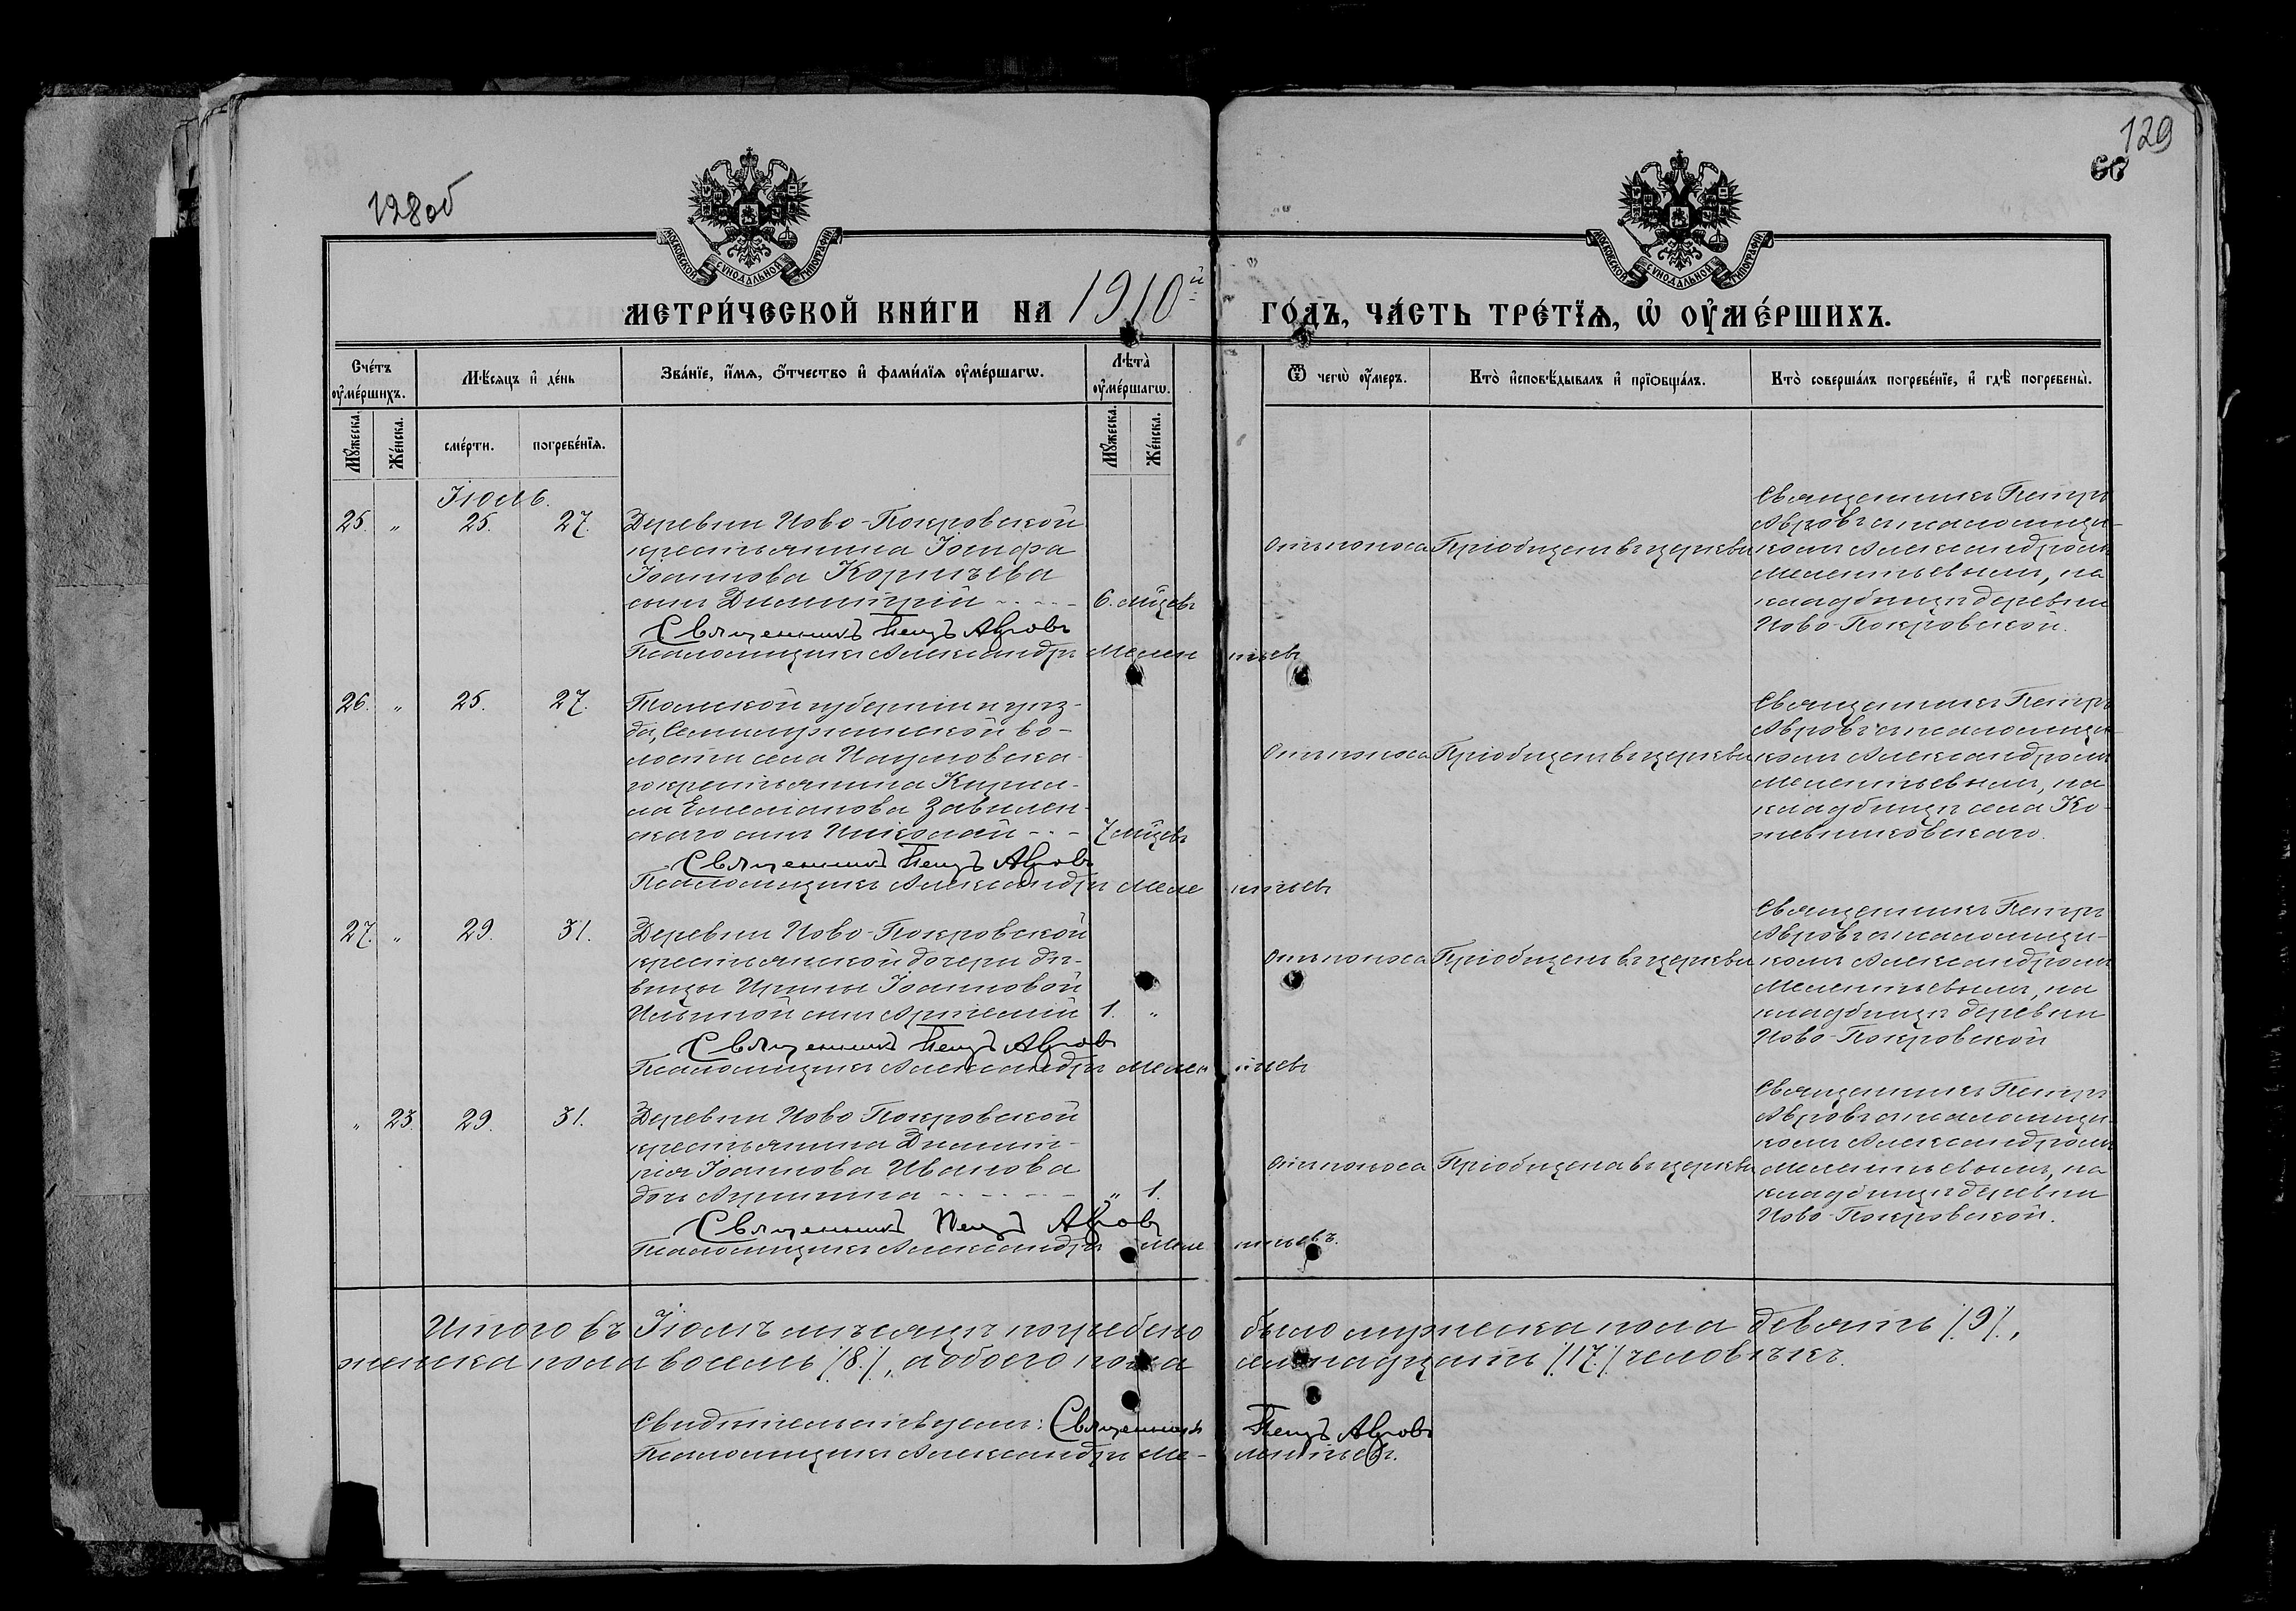 128об
129
60
МОСКОВСКОЙ СѴНОДАЛЬНОЙ ТИПОГРАФІИ
МОСКОВСКОЙ СѴНОДАЛЬНОЙ ТИПОГРАФІИ
МЕТРИ́ЧЕСКОЙ КНИ́ГИ НА 1910й ГО́ДЪ, ЧА́СТЬ ТРЕ́ТЇѦ, Ѡ҆ ОУ҆МЕ́РШИХЪ.
Сче́тъ оу҆ме́ршихъ.
Мѣ́сяцъ и҆ де́нь
Зва́нїе, и҆́мѧ, ѻ҆́тчество и҆ фамѝлїѧ оу҆ме́ршагѡ.
Лѣ́та̀ оу҆ме́ршагѡ.
Ѿ чегѡ̀ оу҆́меръ.
Кто̀ и҆сповѣ́дывалъ и҆ прїѻбща́лъ.
Кто̀ соверша́лъ погребе́нїе, и҆ гдѣ̀ погребены̀.
Мꙋ́жеска.
Же́нска.
сме́рти.
погребе́нїѧ.
Мꙋ́жеска.
Же́нска.
Іюль.
25. „ 25. 27.
Деревни Ново-Покровской
крестьянина Іосифа
Іоаннова Корнѣева
сынъ Димитрій - - - - 6. мѣцевъ
Священникъ Петръ Авровъ
Псаломщикъ Александръ Мелентьевъ
Отъ поноса
Пріобщенъ въ церкви
Священникъ Петръ
Авровъ съ псаломщи-
комъ Александромъ
Мелентьевымъ, на
кладбищѣ деревни
Ново-Покровской.
26. „ 25. 27.
Томской губерніи и уѣз-
да, Семилужинской во-
лости села Наумовска-
го крестьянина Кирил-
ла Емеліанова Завилен-
скаго сынъ Николай - - - 7 мѣцевъ
Священникъ Петръ Авровъ
Псаломщикъ Александръ Мелентьевъ
Отъ поноса
Пріобщенъ въ церкви
Священникъ Петръ
Авровъ съ псаломщи-
комъ Александромъ
Мелентьевымъ, на
кладбищѣ села Ко-
жевниковскаго.
27. „ 29. 31.
Деревни Ново-Покровской
крестьянской дочери дѣ-
вицы Ирины Іоанновой
Ильиной сынъ Артемій 1. „
Священникъ Петръ Авровъ
Псаломщикъ Александръ Мелентьевъ
Отъ поноса
Пріобщенъ въ церкви
Священникъ Петръ
Авровъ съ псаломщи-
комъ Александромъ
Мелентьевымъ, на
кладбищѣ деревни
Ново-Покровской
„ 23. 29. 31.
Деревни Ново-Покровской
крестьянина Димит-
рія Іоаннова Иванова
дочь - - - - - „ 1.
Священникъ Петръ Авровъ
Псаломщикъ Александръ Мелентьевъ.
Отъ поноса
Пріобщена въ церкви
Священникъ Петръ
Авровъ съ псаломщи-
комъ Александромъ
Мелентьевымъ, на
кладбищѣ деревни
Ново-Покровской.
Итого въ Іюлѣ мѣсяцѣ погребено было мужеска пола девять /9/,
женска пола восемь /8/, а обоего пола семнадцать /17/ человѣкъ.
Свидѣтельствуемъ: Священникъ Петръ Авровъ
Псаломщикъ Александръ Ме-лентьевъ.